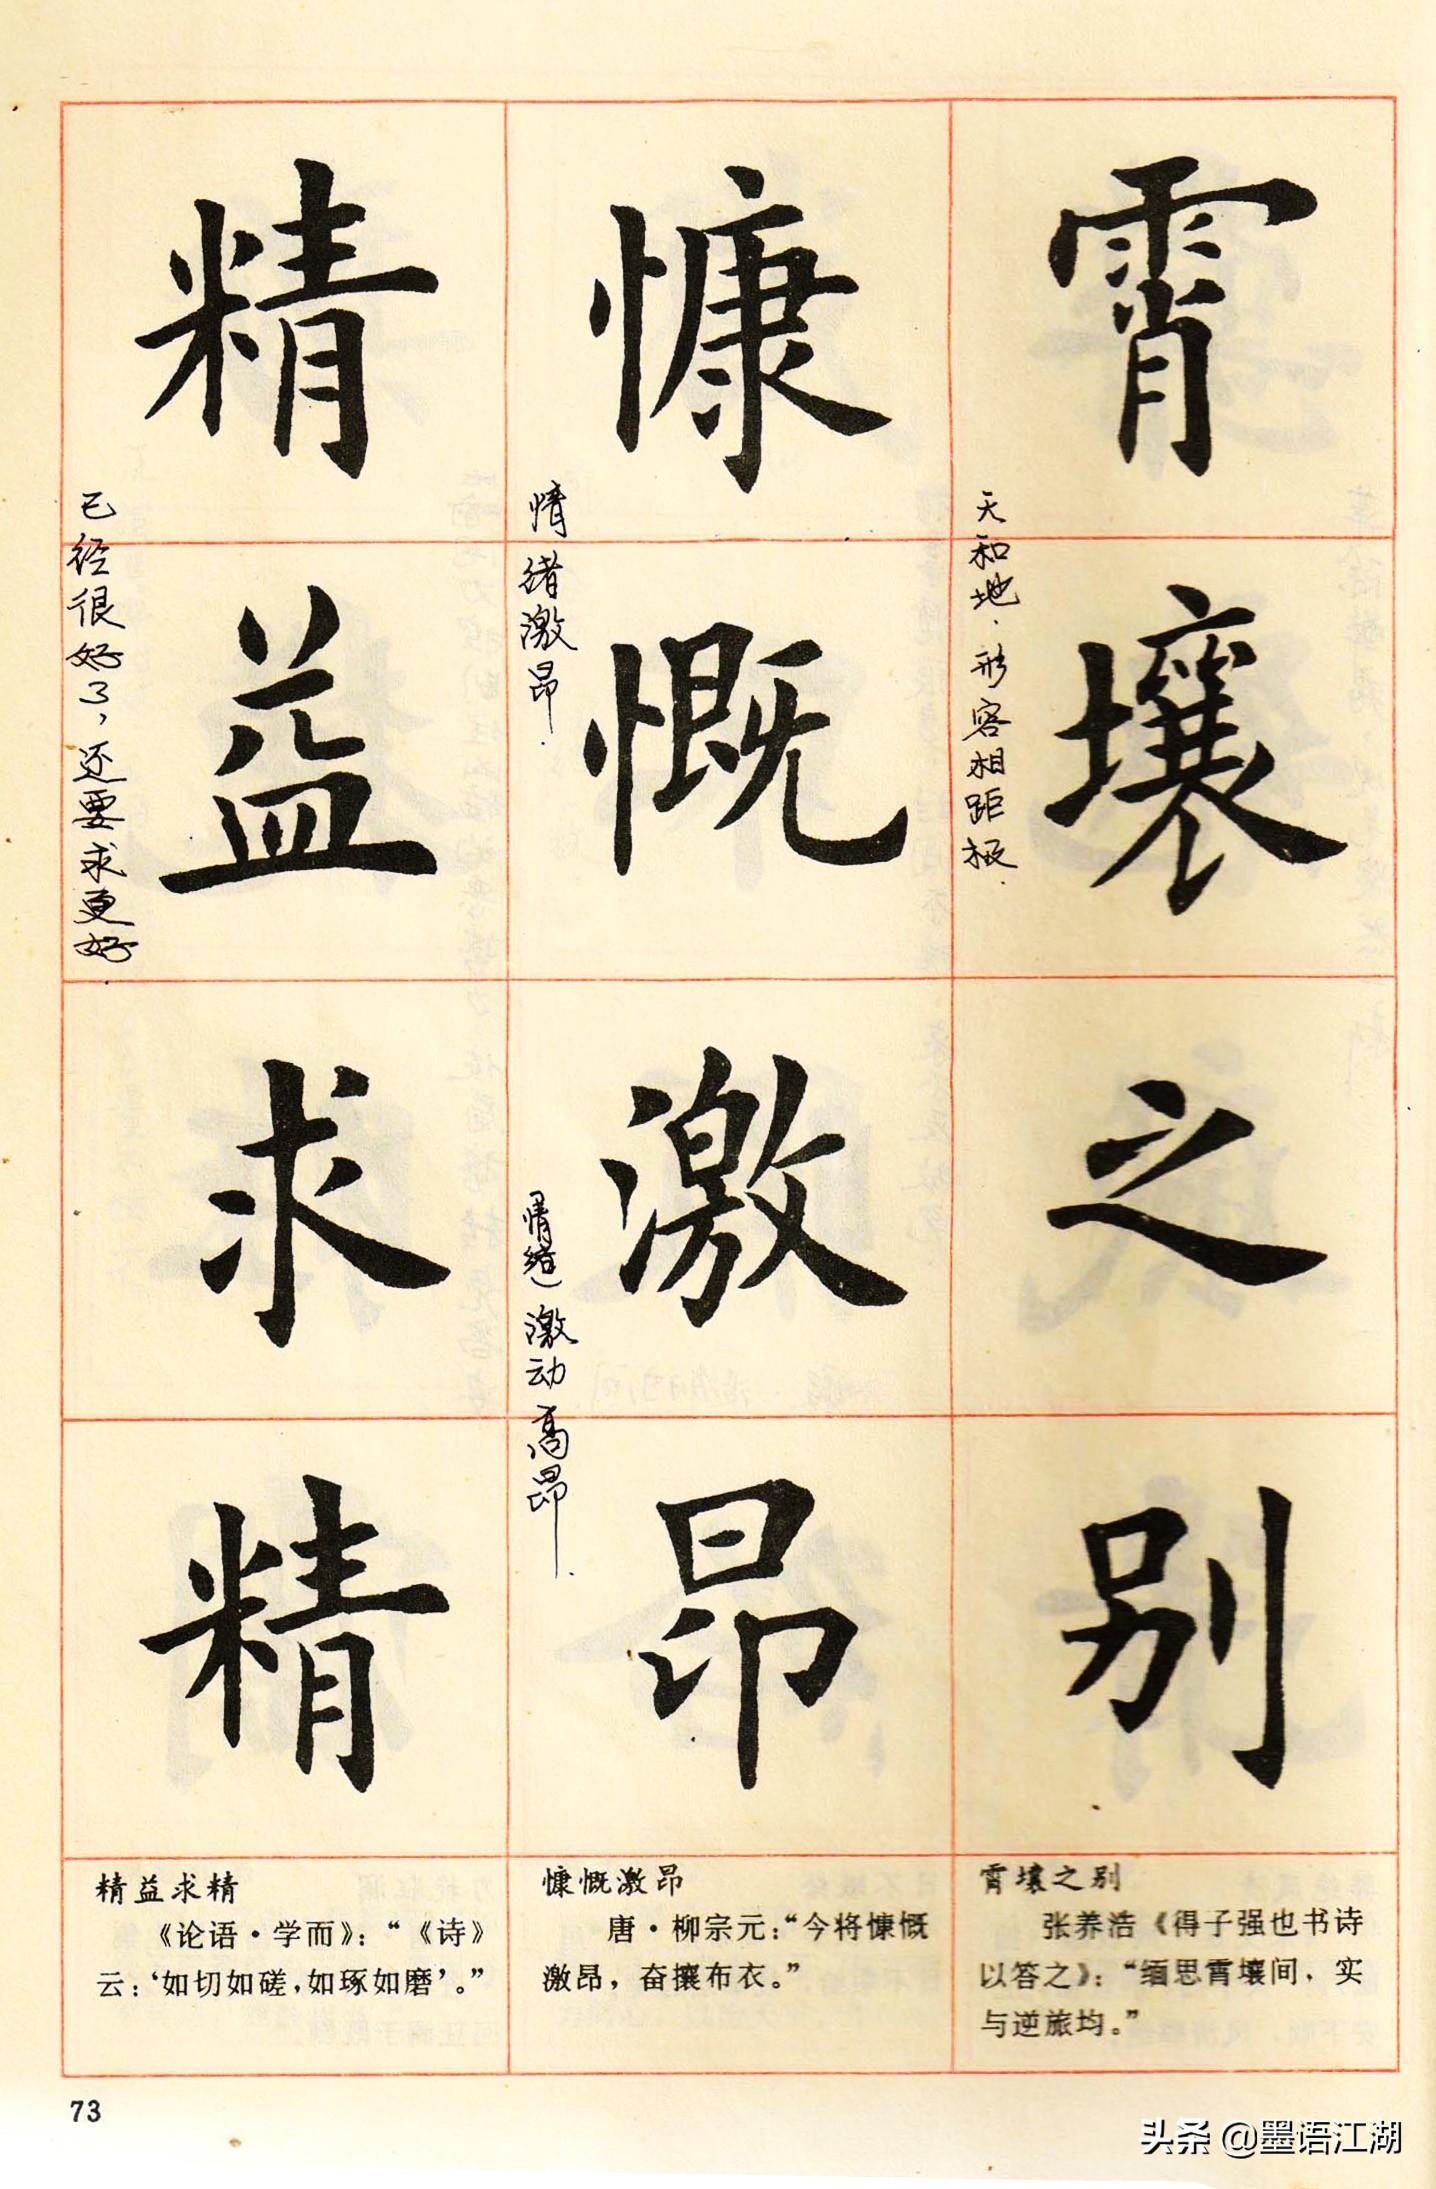 霄壤之别
天和地．形容相距极．
慷慨激昂
情绪激昂．
情绪）激动高昂．
精益求精
已经很好了，还要求更好．
霄壤之别
张养浩《得子强也书诗
以答之》：“缅思霄壤间，实
与逆旅均。”
慷慨激昂
唐·柳宗元：“今将慷慨
激昂，奋攘布衣。”
精益求精
《论语·学而》：“《诗》
云：‘如切如磋，如琢如磨’。”
73
头条 @墨语江湖